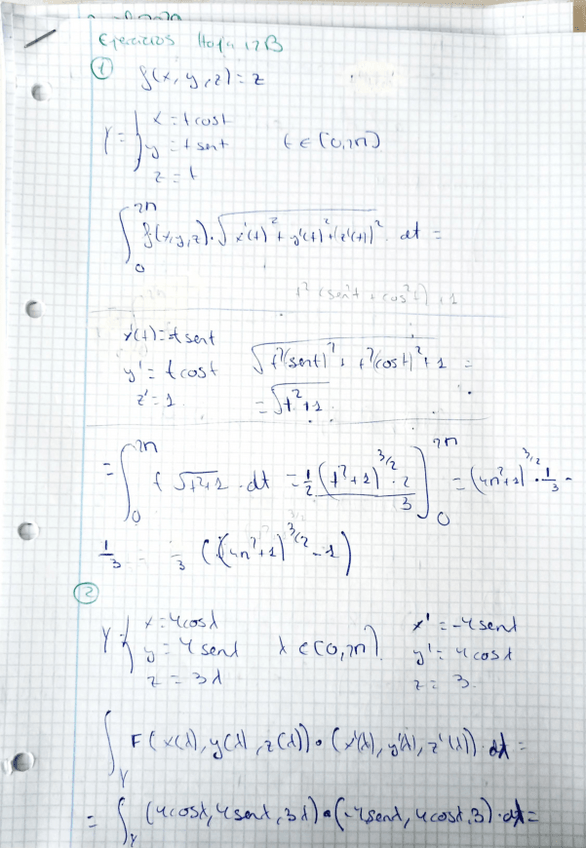 Ejercicios Hoja 12B
① f(x,y,z)=z
γ = { x = t cost
y = t sent t ∈ [0,2π]
z = t
∫₀^{2π} f(x,y,z)·√(x'(t)² + y'(t)² + (z'(t))²) dt =
t² (sen²t + cos²t) + 1
x'(t) = -t sent √(t²(sent)² + t²(cost)² + 1) =
y' = t cost
z' = 1 = √(t²+1)
= ∫₀^{2π} t √(t²+1) · dt = 1/2 (t²+1)^{3/2} · 2/3 ]₀^{2π} = (4π²+1)^{3/2} · 1/3 -
1/3 1/3 ((4π²+1)^{3/2} - 1)
②
γ = { x = 4cosλ x' = -4senλ
y = 4senλ λ ∈ [0,2π] y' = 4cosλ
z = 3λ z = 3
∫_γ F(x(λ), y(λ), z(λ)) · (x'(λ), y'(λ), z'(λ)) dλ =
= ∫_γ (4cosλ, 4senλ, 3λ) · (-4senλ, 4cosλ, 3) · dλ =